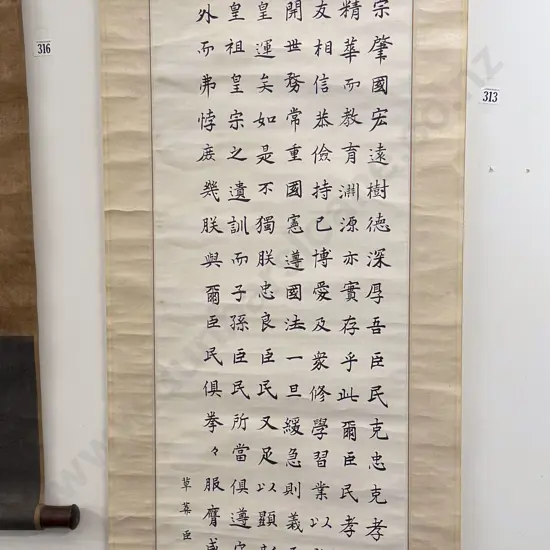 宗肇國宏遠樹德深厚吾臣民克忠克孝
精華而教育淵源亦實存乎此爾臣民孝
友相信恭儉持己博愛及衆修學習業以
開世務常重國憲遵國法一旦緩急則義
皇運矣如是不獨朕忠良臣民又足以顯
皇祖皇宗之遺訓而子孫臣民所當俱遵
外而弗悖庶幾朕與爾臣民俱拳々服膺咸
草葉臣
316
313